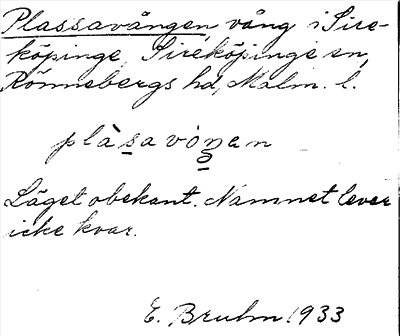 Plassavången, vång i Sire-
köpinge, Sireköpinge sn,
Rönnebergs hd, Malm. l.
plàsavóŋen
Läget obekant. Namnet lever
icke kvar.
E. Bruhn 1933